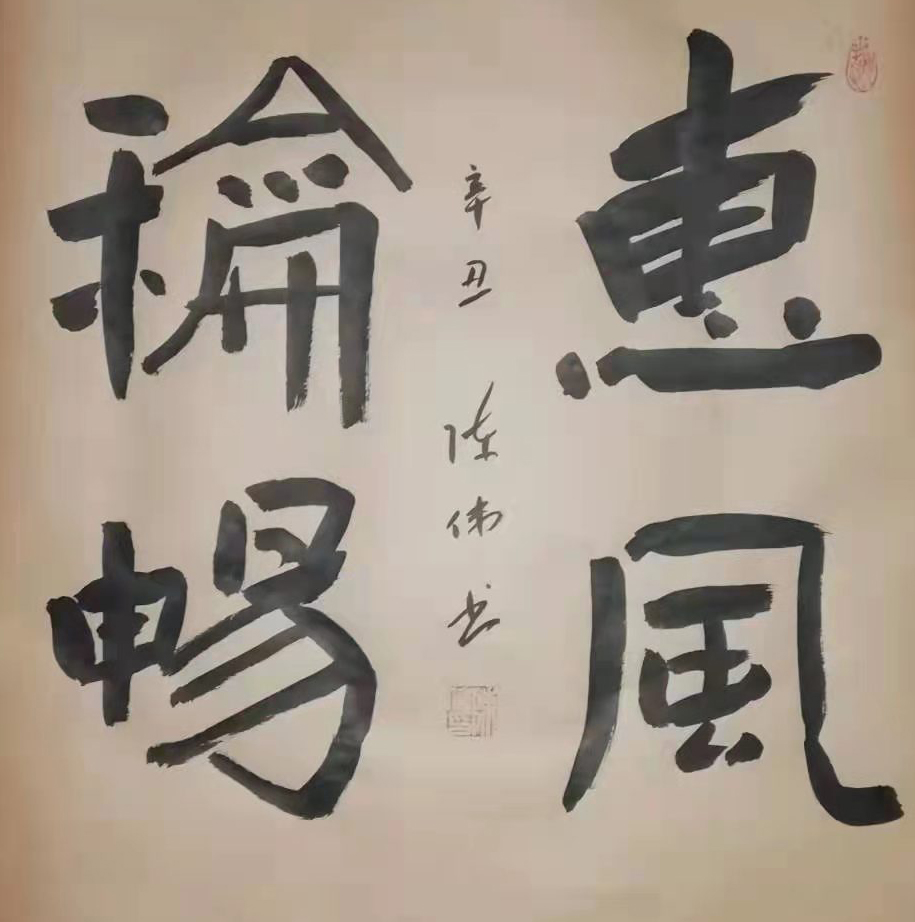 惠風
龢暢
辛丑 陈伟书